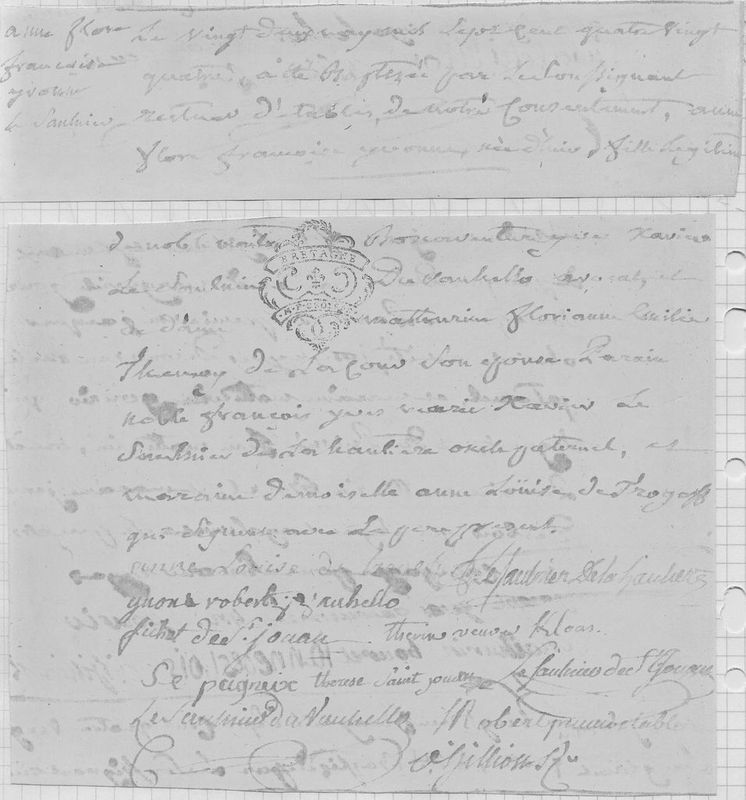 anne flore
françoise
yvonne
le Saulnier
Le vingt deux may mil sept cent quatre vingt
quatre, a été Baptizée par Le Soussignant
recteur d'étables, de notre Consentement, anne
flore françoise yvonne, née d'hier, fille Legitime
de noble maitre Bonaventure yves Xavier
Le Saulnier De vauhello avocat, et
BRETAGNE
de dame mathurine florianne
de La Cour Son epouse Parain
noble françois yves marie Xavier Le
Saulnier de La hautière oncle paternel, et
maraine demoiselle anne Louise de Trogoff
qui Signent avec Le pere present.
anne Louise de trogoff Le Saulnier De la hautiere
robert vauhello
fichet de St. jouan veuve
Le peigneux therese Saint jouan Le Saulnier de St Jouan
Le Saulnier du Vauhello Robert
O. Gillion